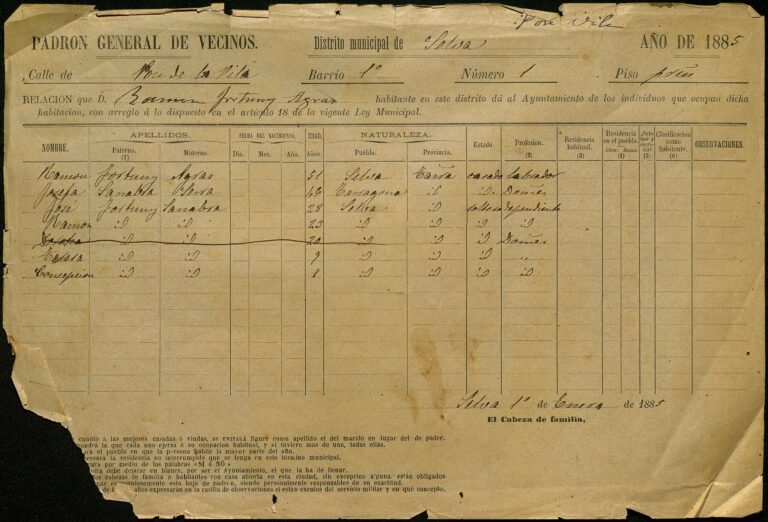 PADRON GENERAL DE VECINOS. Distrito municipal de Selva AÑO DE 1885
Calle de Pou de la Vila Barrio 1º Número 1 Piso
RELACION que D. Ramon Fortuny Agras habitante en este distrito dá al Ayuntamiento de los individuos que ocupan dicha
habitacion, con arreglo á lo dispuesto en el artículo 18 de la vigente Ley Municipal.
NOMBRE. APELLIDOS. Paterno. (1) Materno. FECHA DEL NACIMIENTO. Dia. Mes. Año. EDAD. Años. NATURALEZA. Pueblo. Provincia. Estado Profesion. (2) Residencia habitual. (3) Residencia en el pueblo. Años. Meses. (4) (5) Clasificacion como habitante. (6) OBSERVACIONES.
Ramon Fortuny Agras 51 Selva casado labrador
Josefa Sanabra 46 Tarragona id id
José Fortuny Sanabra 28 Selva id soltero dependiente
Ramon id id 23 id id id id
id id 20 id id id
id id 9 id id id "
Concepcion id id 8 id id id id
Selva 1º de Enero de 1885
El Cabeza de familia,
cuanto á las mujeres casadas ó viudas, se EVITARÁ figure como apellido el del marido en lugar del de padre.
la que cada uno ejerza ó su ocupacion habitual, y si tuviere mas de uno, todas ellas.
el pueblo en que la persona habite la mayor parte del año.
la residencia no interrumpida que se tenga en este término municipal.
por medio de las palabras «SI ó NO»
debe dejarse en blanco, por ser el Ayuntamiento, el que la ha de llenar.
cabezas de familia ó habitantes con casa abierta en esta ciudad, sin excepcion alguna están obligados
esta hoja de padron, siendo personalmente responsables de su exactitud.
años expresarán en la casilla de observaciones si están exentos del servicio militar y en qué concepto.